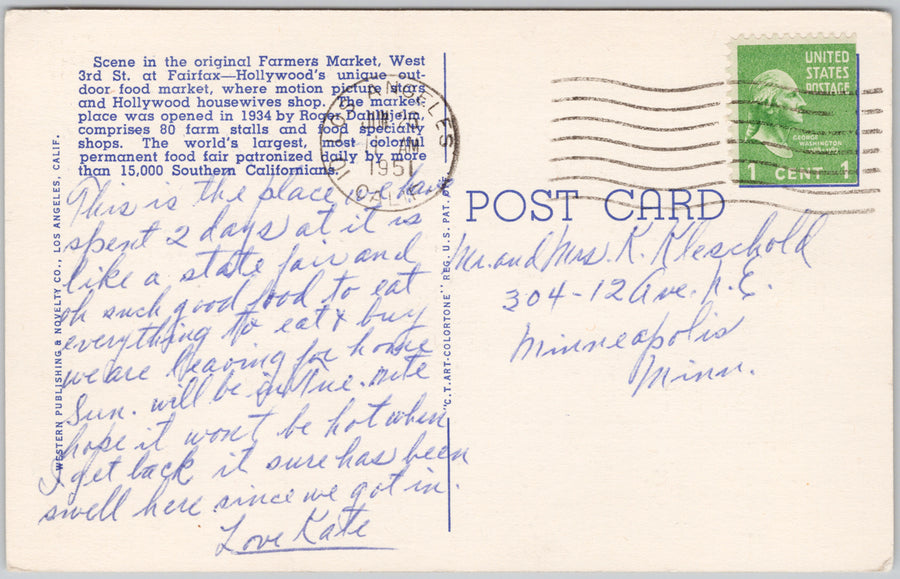 Scene in the original Farmers Market, West
3rd St. at Fairfax—Hollywood's unique out-
door food market, where motion picture stars
and Hollywood housewives shop. The market
place was opened in 1934 by Roger Dahlhjelm,
comprises 80 farm stalls and food specialty
shops. The world's largest, most colorful
permanent food fair patronized daily by more
than 15,000 Southern Californians.
This is the place we have
spent 2 days at it is
like a state fair and
oh such good food to eat
everything to eat & buy
we are leaving for home
Sun. will be in Tue. nite
hope it wont be hot when
I get back it sure has been
swell here since we got in.
Love Kate
WESTERN PUBLISHING & NOVELTY CO., LOS ANGELES, CALIF.
"C.T. ART-COLORTONE" REG. U.S. PAT. OFF.
LOS ANGELES
JUN
AM
1951
CALIF.
UNITED
STATES
POSTAGE
GEORGE
WASHINGTON
1 CENT 1
POST CARD
Mr. and Mrs. K. Kleschold
304-12 Ave. N.E.
Minneapolis
Minn.